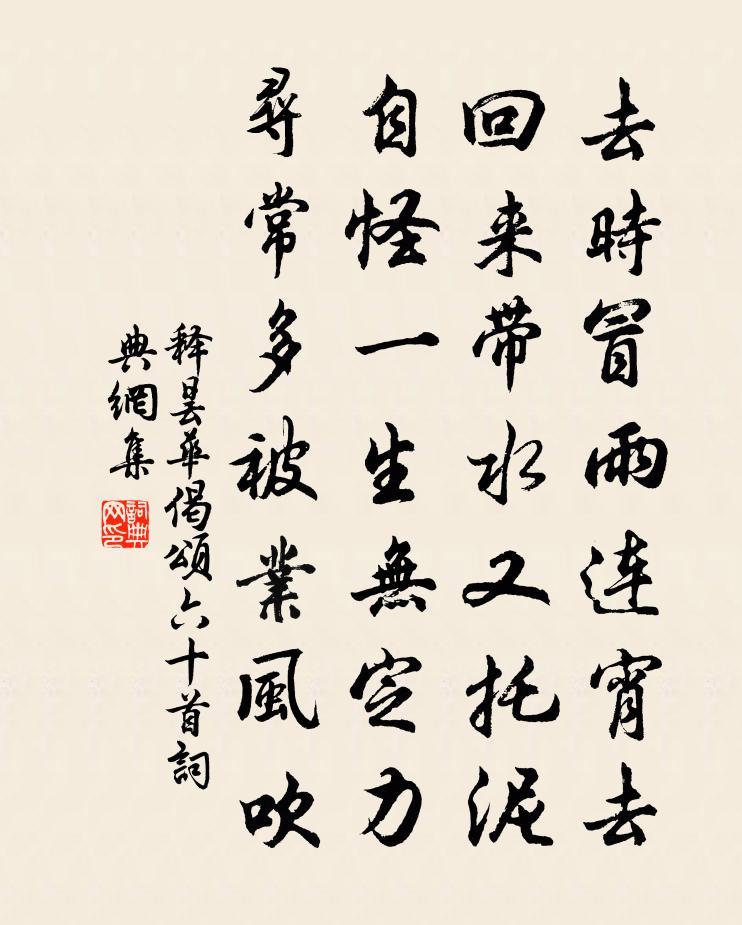 去時冒雨連宵去
回来帶水又托泥
自怪一生無定力
尋常多被業風吹
释曇華偈頌六十首詞
典網集
詞典
网印